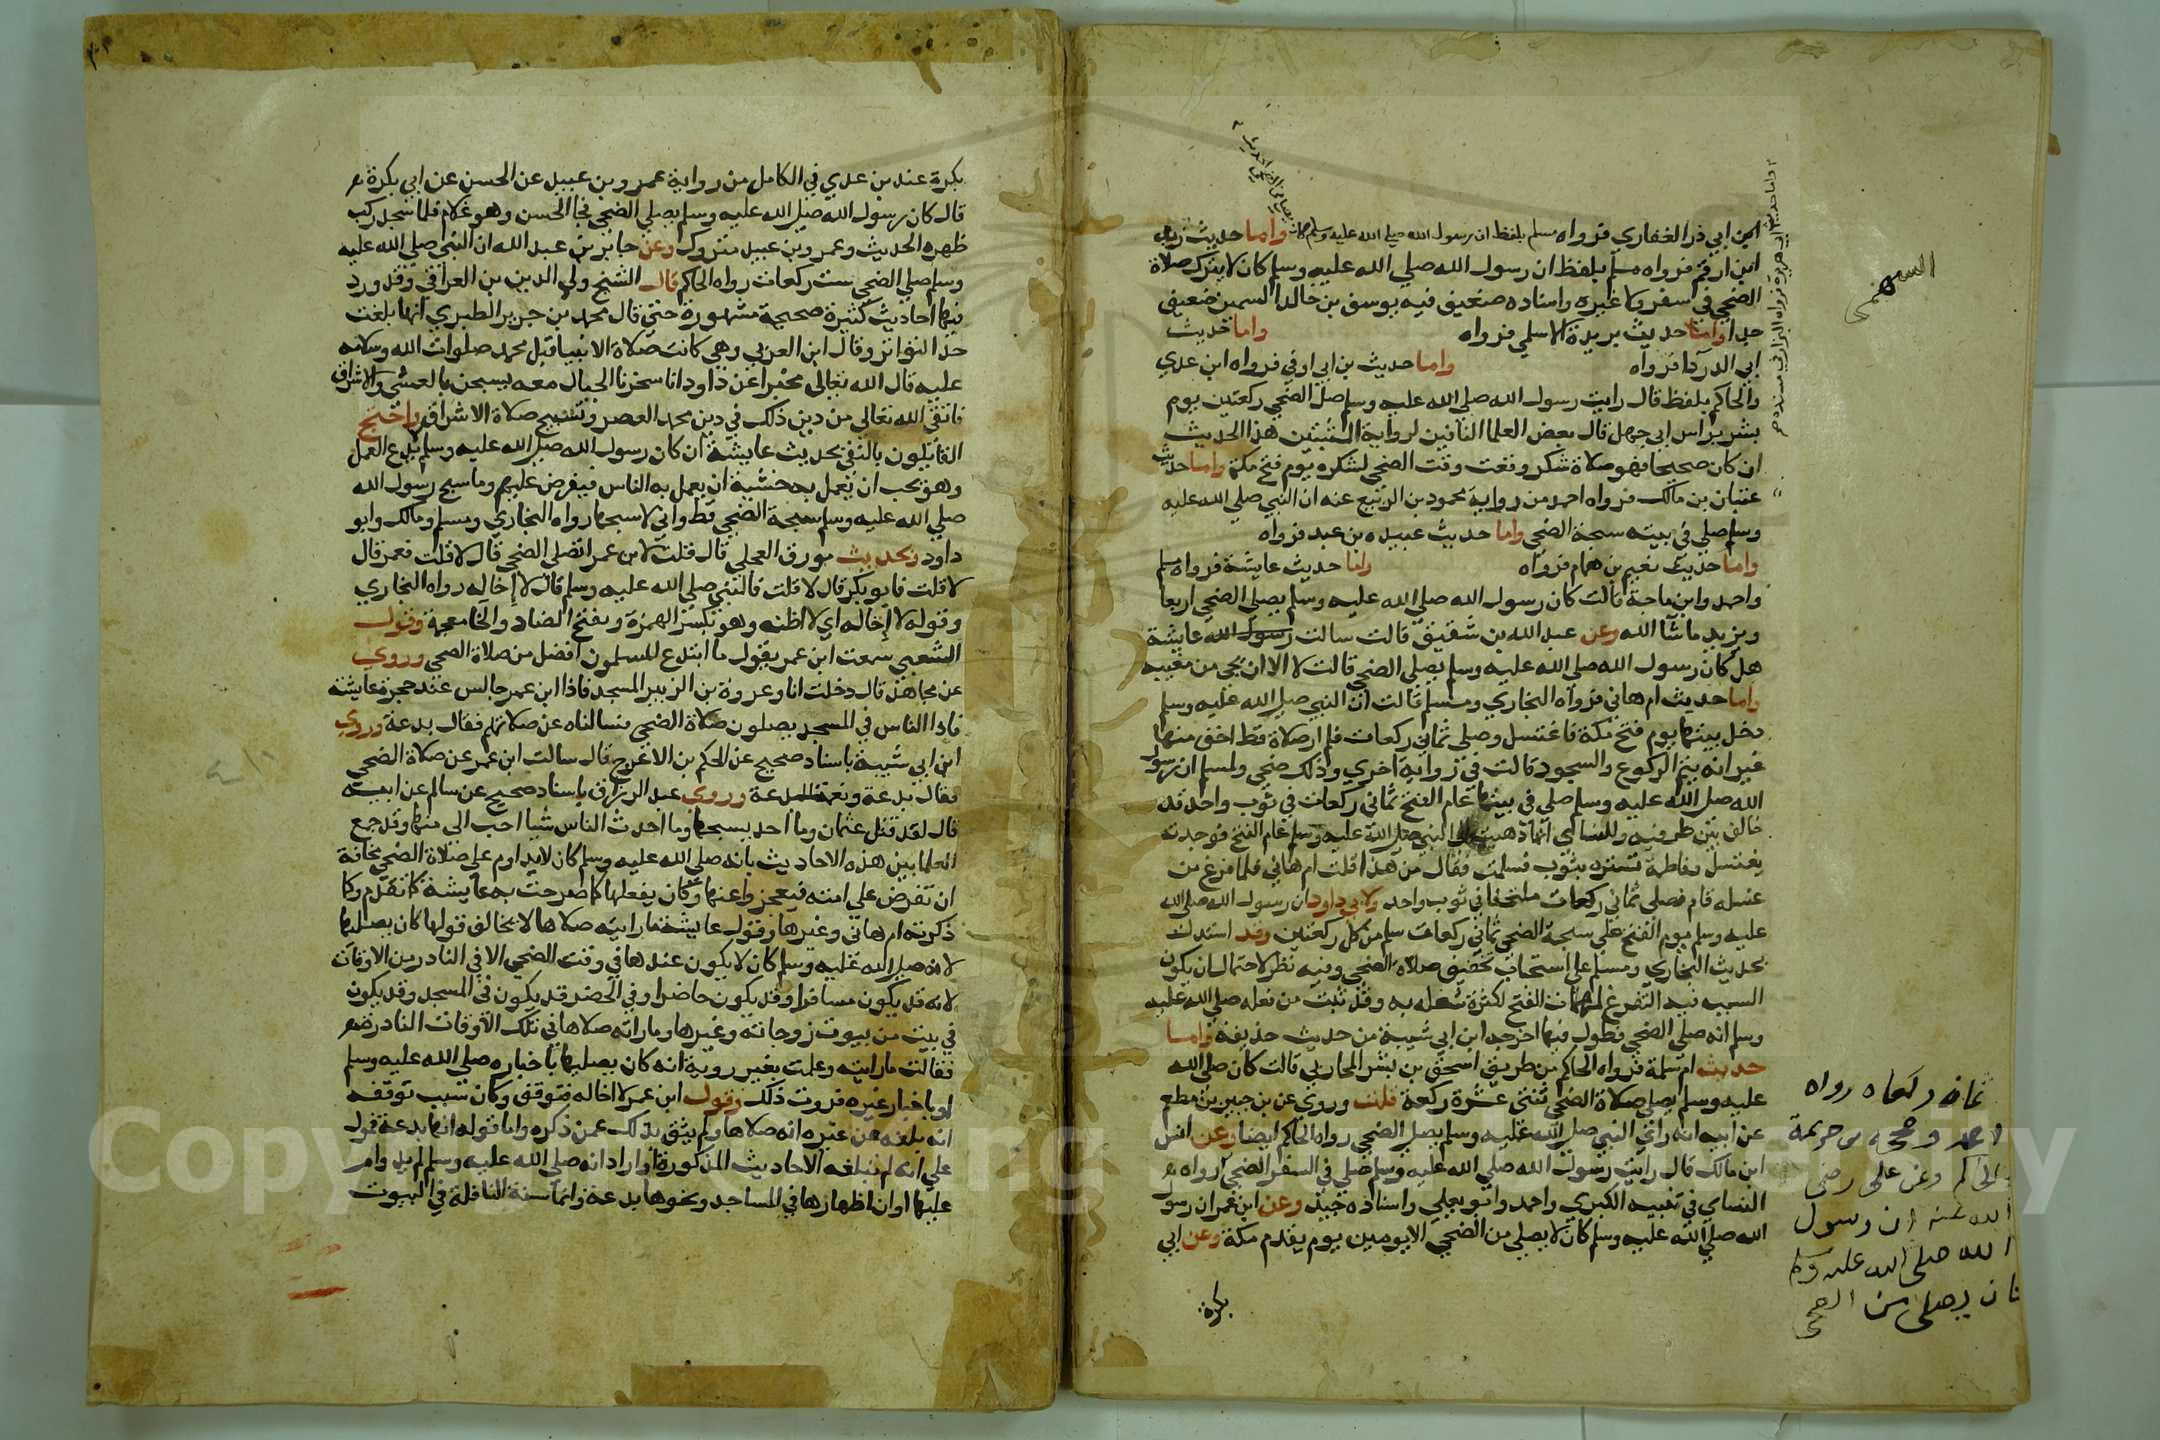 ابن ابي ذر الغفاري فرواه مسلم بلفظ ان رسول الله صلي الله عليه وسلم كان واما حديث زيد
ابن ارقم فرواه مسلم بلفظ ان رسول الله صلي الله عليه وسلم كان لا يترك صلاة
الضحي في سفر ولا غيره واسناده ضعيف فيه يوسف بن خالد السمين ضعيف
جدا واما حديث بريدة الاسلمي فرواه واما حديث
ابي الدردا فرواه واما حديث بن ابي اوفي فرواه ابن عدي
والحاكم بلفظ قال رايت رسول الله صلي الله عليه وسلم صلي الضحي ركعتين يوم
بشر براس ابي جهل قال بعض العلما النافين لرواية المثبتين هذا الحديث
ان كان صحيحا فهو صلاة شكر وقعت وقت الضحي لشكره يوم فتح مكة واما حديث
عتبان بن مالك فرواه احمد من رواية محمود بن الربيع عنه ان النبي صلي الله عليه
وسلم صلي في بيته سبحة الضحي واما حديث عبيده بن عبد فرواه
واما حديث نعيم بن همام فرواه واما حديث عايشة فرواه مسلم
واحمد وابن ماجة قالت كان رسول الله صلي الله عليه وسلم يصلي الضحي اربعا
ويزيد ما شا الله وعن عبد الله بن شقيق قالت سالت رسول الله عايشة
هل كان رسول الله صلي الله عليه وسلم يصلي الضحي قالت لا الا ان يجي من مغيبه
واما حديث ام هاني فرواه البخاري ومسلم قالت ان النبي صلي الله عليه وسلم
دخل بيتها يوم فتح مكة فاغتسل وصلي ثماني ركعات فلم ار صلاة قط اخف منها
غير انه يتم الركوع والسجود قالت في رواية اخري وذلك ضحي ولمسلم ان رسول
الله صلي الله عليه وسلم صلي في بيتها عام الفتح ثماني ركعات في ثوب واحد قد
خالف بين طرفيه وللنساي انها ذهبت الي النبي صلي الله عليه وسلم عام الفتح فوجدته
يغتسل وفاطمة تستره بثوب فسلمت فقال من هذا قلت ام هاني فلما فرغ من
غسله قام فصلي ثماني ركعات ملتحفا في ثوب واحد ولابي داود ان رسول الله صلي الله
عليه وسلم يوم الفتح صلي سبحة الضحي ثماني ركعات سلم من كل ركعتين وقد استدل
بحديث البخاري ومسلم علي استحباب تخفيف صلاة الضحي وفيه نظر لاحتمال ان يكون
السبب فيه التفرغ لمهمات الفتح لكثرة شغله به وقد ثبت من فعله صلي الله عليه
وسلم انه صلي الضحي فطول فيها اخرجه ابن ابي شيبة من حديث حذيفة واما
حديث ام سلمة فرواه الحاكم من طريق اسحق بن بشر المحاربي قالت كان صلي الله
عليه وسلم يصلي صلاة الضحي ثنتي عشرة ركعة قلت وروي عن بن جبير بن مطعم
عن ابيه انه راي النبي صلي الله عليه وسلم يصلي الضحي رواه الحاكم ايضا وعن انس
ابن مالك قال رايت رسول الله صلي الله عليه وسلم صلي في السفر الضحي رواه
النساي في الكبري واحمد وابو يعلي واسناده جيد وعن ابن عمر ان رسول
الله صلي الله عليه وسلم كان لا يصلي من الضحي الا يومين يوم يقدم مكة وعن ابي
بكرة
ثمان ركعات رواه
احمد وصححه بن خزيمة
والحاكم وعن علي رضي
الله عنه ان رسول
الله صلي الله عليه وسلم
كان يصلي من الضحي
بكرة عند بن عدي في الكامل من رواية عمرو بن عبيد عن الحسن عن ابي بكرة
قال كان رسول الله صلي الله عليه وسلم يصلي الضحي فجا الحسن وهو غلام فلما سجد ركب
ظهره الحديث وعمرو بن عبيد متروك وعن جابر بن عبد الله ان النبي صلي الله عليه
وسلم صلي الضحي ست ركعات رواه الحاكم قال الشيخ ولي الدين بن العراقي وقد ورد
فيها احاديث كثيرة صحيحة مشهورة حتي قال محمد بن جرير الطبري انها بلغت
حد التواتر وقال ابن العربي وهي كانت صلاة الانبيا قبل محمد صلوات الله وسلامه
عليه قال الله تعالي مخبرا عن داود انا سخرنا الجبال معه يسبحن بالعشي والاشراق
فابقي الله تعالي من دين ذلك في دين محمد العصر ونسخ صلاة الاشراق واحتج
القايلون بالنفي بحديث عايشة ان كان رسول الله صلي الله عليه وسلم ليدع العمل
وهو يحب ان يعمل به خشية ان يعمل به الناس فيفرض عليهم وما سبح رسول الله
صلي الله عليه وسلم سبحة الضحي قط واني لاسبحها رواه البخاري ومسلم ومالك وابو
داود وبحديث مورق العجلي قال قلت لابن عمر اتصلي الضحي قال لا قلت فعمر قال
لا قلت فابو بكر قال لا قلت فالنبي صلي الله عليه وسلم قال لا إخاله رواه البخاري
وقوله لا إخاله اي لا اظنه وهو بكسر الهمزة وبفتح الضاد والخا معجمة وقول
الشعبي سمعت ابن عمر يقول ما ابتدع المسلمون افضل من صلاة الضحي وروي
عن مجاهد قال دخلت انا وعروة بن الزبير المسجد فاذا ابن عمر جالس عند حجرة عايشة
فاذا الناس في المسجد يصلون صلاة الضحي فسالناه عن صلاتهم فقال بدعة وروي
ابن ابي شيبة باسناد صحيح عن الحكم بن الاعرج قال سالت ابن عمر عن صلاة الضحي
فقال بدعة ونعمة البدعة وروي عبد الرزاق باسناد صحيح عن سالم عن ابيه
قال لقد قتل عثمان وما احد يسبحها وما احدث الناس شيا احب الي منها وقد جمع
العلما بين هذه الاحاديث بانه صلي الله عليه وسلم كان لا يداوم علي صلاة الضحي مخافة
ان تفرض علي امته فيعجزوا عنها وكان يفعلها كما صرحت به عايشة كما تقدم وكما
ذكرته ام هاني وغيرها وقول عايشة ما رايته صلاها لا يخالف قولها كان يصليها
لانه صلي الله عليه وسلم كان لا يكون عندها في وقت الضحي الا في النادر من الاوقات
لانه قد يكون مسافرا وقد يكون حاضرا وفي الحضر قد يكون في المسجد وقد يكون
في بيت من بيوت زوجاته وغيرها وما راته صلاها في تلك الاوقات النادرة
فقالت ما رايته وعلمت بغير روية انه كان يصليها باخباره صلي الله عليه وسلم
او باخبار غيره فروت ذلك وقول ابن عمر لا اخاله فتوقف وكان سبب توقفه
انه بلغه عن غيره انه صلاها ولم يثق بذلك عمن ذكره واما قوله انها بدعة فمول
علي انه لم تبلغه الاحاديث المذكورة او اراد انه صلي الله عليه وسلم لم يداوم
عليها او ان اظهارها في المساجد ونحوها بدعة وانما سنة النافلة في البيوت